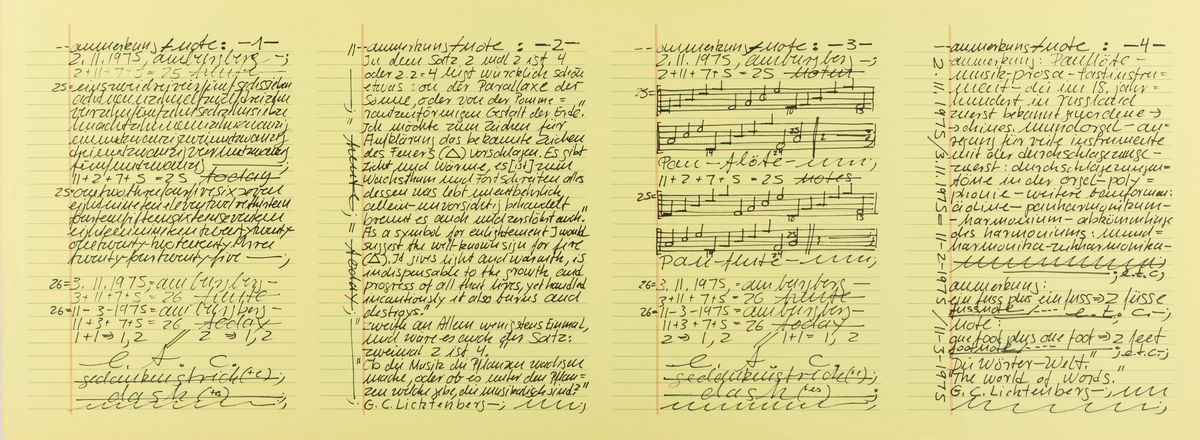 -- anmerkung + note : -1-
2. 11. 1975, am burgberg -;
2+11+7+5 = 25 heute
25 = einszweidreivierfünfsechssieben
achtneunzehnelfzwölfdreizehn
vierzehnfünfzehnsechzehnsiebzehn
undzwanzig
11+2+7+5 = 25 today
25 = onetwothreefourfivesixseven
eightnineteneleventwelvethirteen
fourteenfifteensixteenseventeen
eighteennineteentwentytwenty
onetwentytwotwentythree
twentyfourtwentyfive -;
26 = 3. 11. 1975 = am burgberg -
3+11+7+5 = 26 heute
26 = 11-3-1975 = am burgberg -
11+3+7+5 = 26 today
1+1 ⇒ 1, 2 // 2 ⇒ 1, 2
e. t. c. ;
gedankenstrich (+e) ;
dash (+es) ;
-- anmerkung + note : -2-
"In dem Satz 2 und 2 ist 4
oder 2·2=4 liegt würcklich schon
etwas von der Parallaxe der
Sonne, oder von der Pomme=
ranzenförmigen Gestalt der Erde."
"Ich möchte zum Zeichen für
Aufklärung das bekannte Zeichen
des Feuers (△) vorschlagen. Es gibt
Licht und Wärme, es [ist] zum
Wachsthum und Fortschreiten alles
dessen was lebt unentbehrlich,
allein - unvorsichtig behandelt
brennt es auch und zerstört auch."
"As a symbol for enlightement I would
suggest the wellknown sign for fire
(△). It gives light and warmth, is
indispensable to the growth and
progress of all that lives, yet handled
incautiously it also burns and
destroys."
"zweifle an Allem wenigstens Einmal,
und wäre es auch der Satz:
zweimal 2 ist 4."
"Ob die Musik die Pflanzen wachsen
mache, oder ob es unter den Pflan=
zen welche gebe, die musikalisch sind?"
G.C. Lichtenberg -;
heute, = today,
-- anmerkung + note : -3-
2. 11. 1975, am burgberg -;
2+11+7+5 = 25 Noten
25 =
Pan-flöte -;
11+2+7+5 = 25 Notes
25 =
Pan-flute -;
26 = 3. 11. 1975 = am burgberg -
3+11+7+5 = 26 heute
26 = 11-3-1975 = am burgberg -
11+3+7+5 = 26 today
2 ⇒ 1, 2 // 1+1 = 1, 2
e. t. c. ;
gedankenstrich (+e) ;
dash (+es) ;
-- anmerkung + note : -4-
anmerkung: Panflöte -
musik-prosa-tasteninstru=
ment - die im 18. jahr=
hundert in russland
zuerst bekannt gwordene ->
-> chines. mundorgel - an=
regung für viele instrumente
mit der durchschlagezunge -
zuerst: durchschlagezungen=
töne in der orgel-poly=
phonie - weitere bauformen:
äoline - panharmonikum -
- harmonium - abkömmlinge
des harmoniums: mund=
harmonika - ziehharmonika -
; e.t.c.;
anmerkung:
ein fuss plus ein fuss => 2 füsse
fussnote e. t. c. -;
note:
one foot plus one foot => 2 feet
footnote ; e.t.c -;
"Die Wörter-Welt."
"The world of Words."
G.C. Lichtenberg -;
2. 11. 1975 / 3. 11. 1975 = 11-2-1975 / 11-3-1975